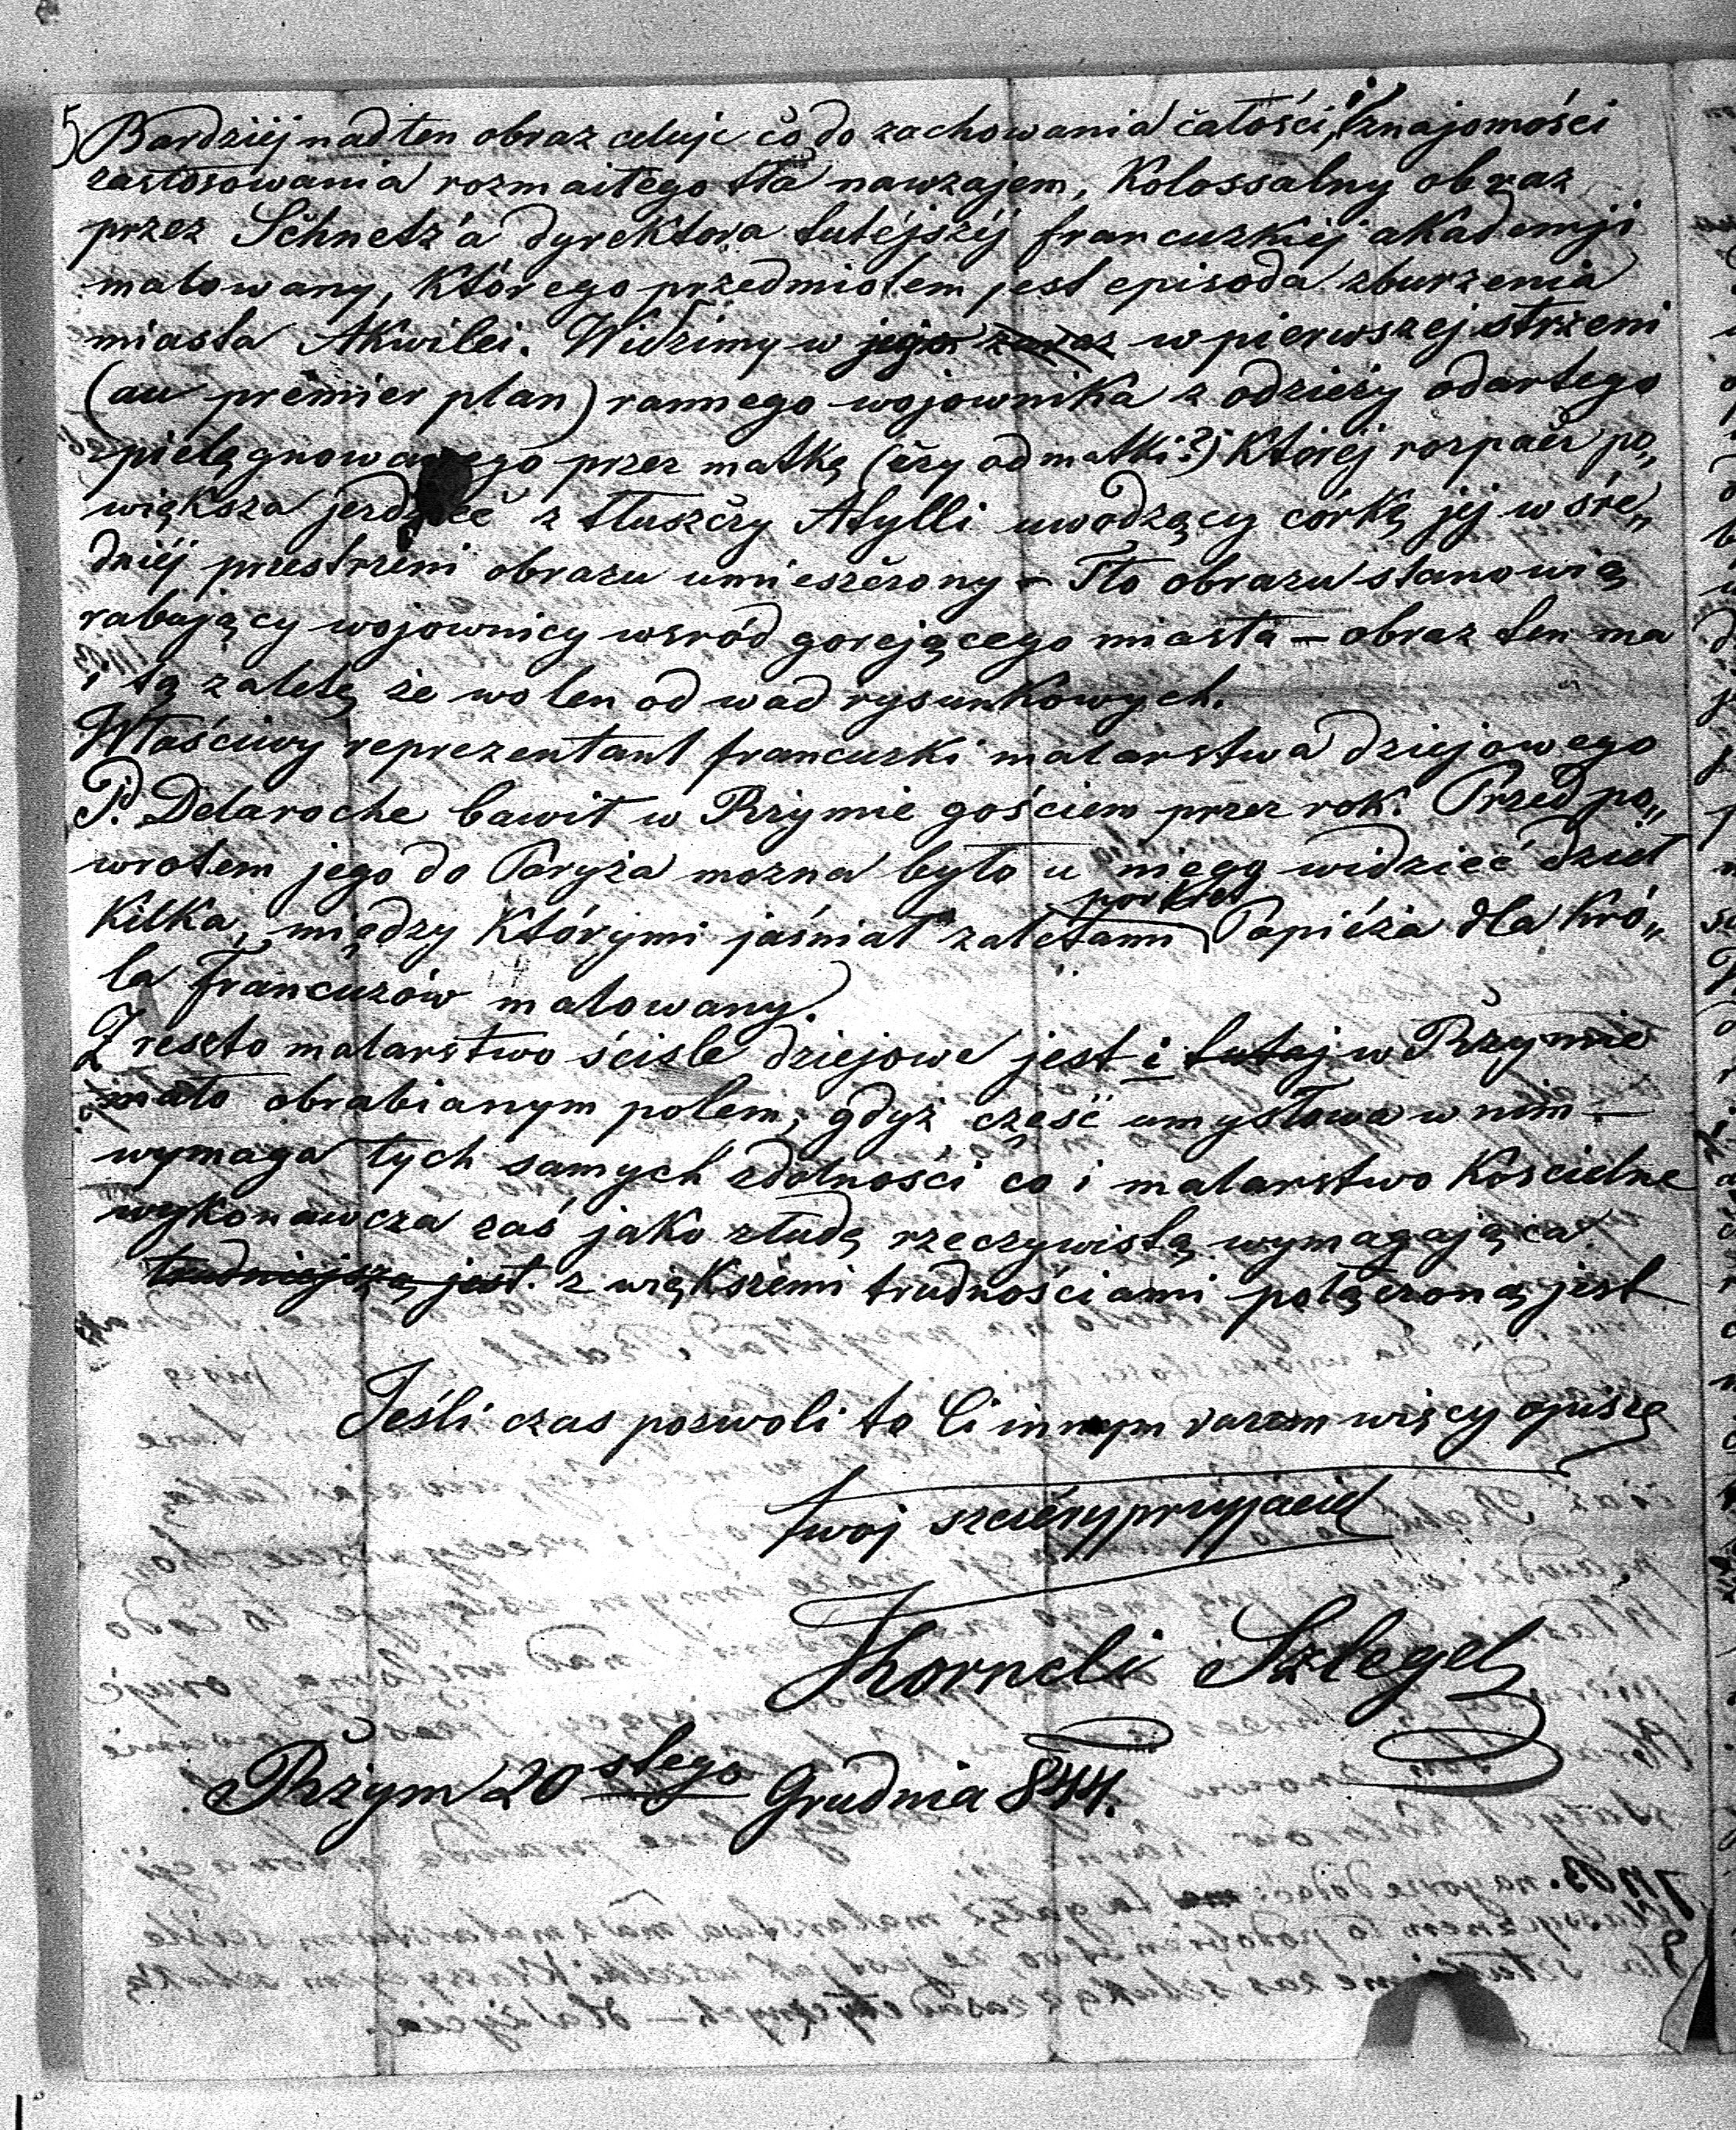 5) Bardziéj nad ten obraz celuje co do zachowania całości, i znajomości
zastosowania rozmaitego tła nawzajem, Kolossalny obraz
przez Schnetz'a dyrektora tutéjszéj francuzkiéj akademji
malowany, którego przedmiotem jest episoda zburzenia
miasta Akwilei. Widzimy w jego zaraz w pierwszej strzeni
(au premier plan) rannego wojownika z odzieży odartego
pielęgnowanego przez matkę (czy od matki?) Któréj rozpacz po„
większa jezdziec z tłuszczy Atylli uwodzący córkę jéj w śre„
dniéj przestrzeni obrazu umieszczony – Tło obrazu stanowią
rabujący wojownicy wsród gorejącego miasta – obraz ten ma
i tę zaletę że wolen od wad rysunkowych.
Właściwy reprezentant francuzki malarstwa dziejowego
P. Delaroche bawił w Rzymie gościem przez rok. Przed po„
wrotem jego do Paryża mozna było u niego widzieć dzieł
Kilka, między Którymi jaśniał zaletami portret Papiéża dla Kró„
la Francuzów malowany.
Z reszto malarstwo ściśle dziejowe jest i tutaj w Rzymie
mało obrabianym polem, gdyż cześć umysłowa w nim –
wymaga tych samych zdolności co i malarstwo Kościelne
wykonawcza zaś jako złudę rzeczywistą wymagająca
trudniejszą jest. z większemi trudnościami połączoną jest
Jeśli czas pozwoli to Ci innym razem więcy opiszę
twoj szciéry przyjaciel
Korneli Szlegel
Rzym 20 stego Grudnia 844.